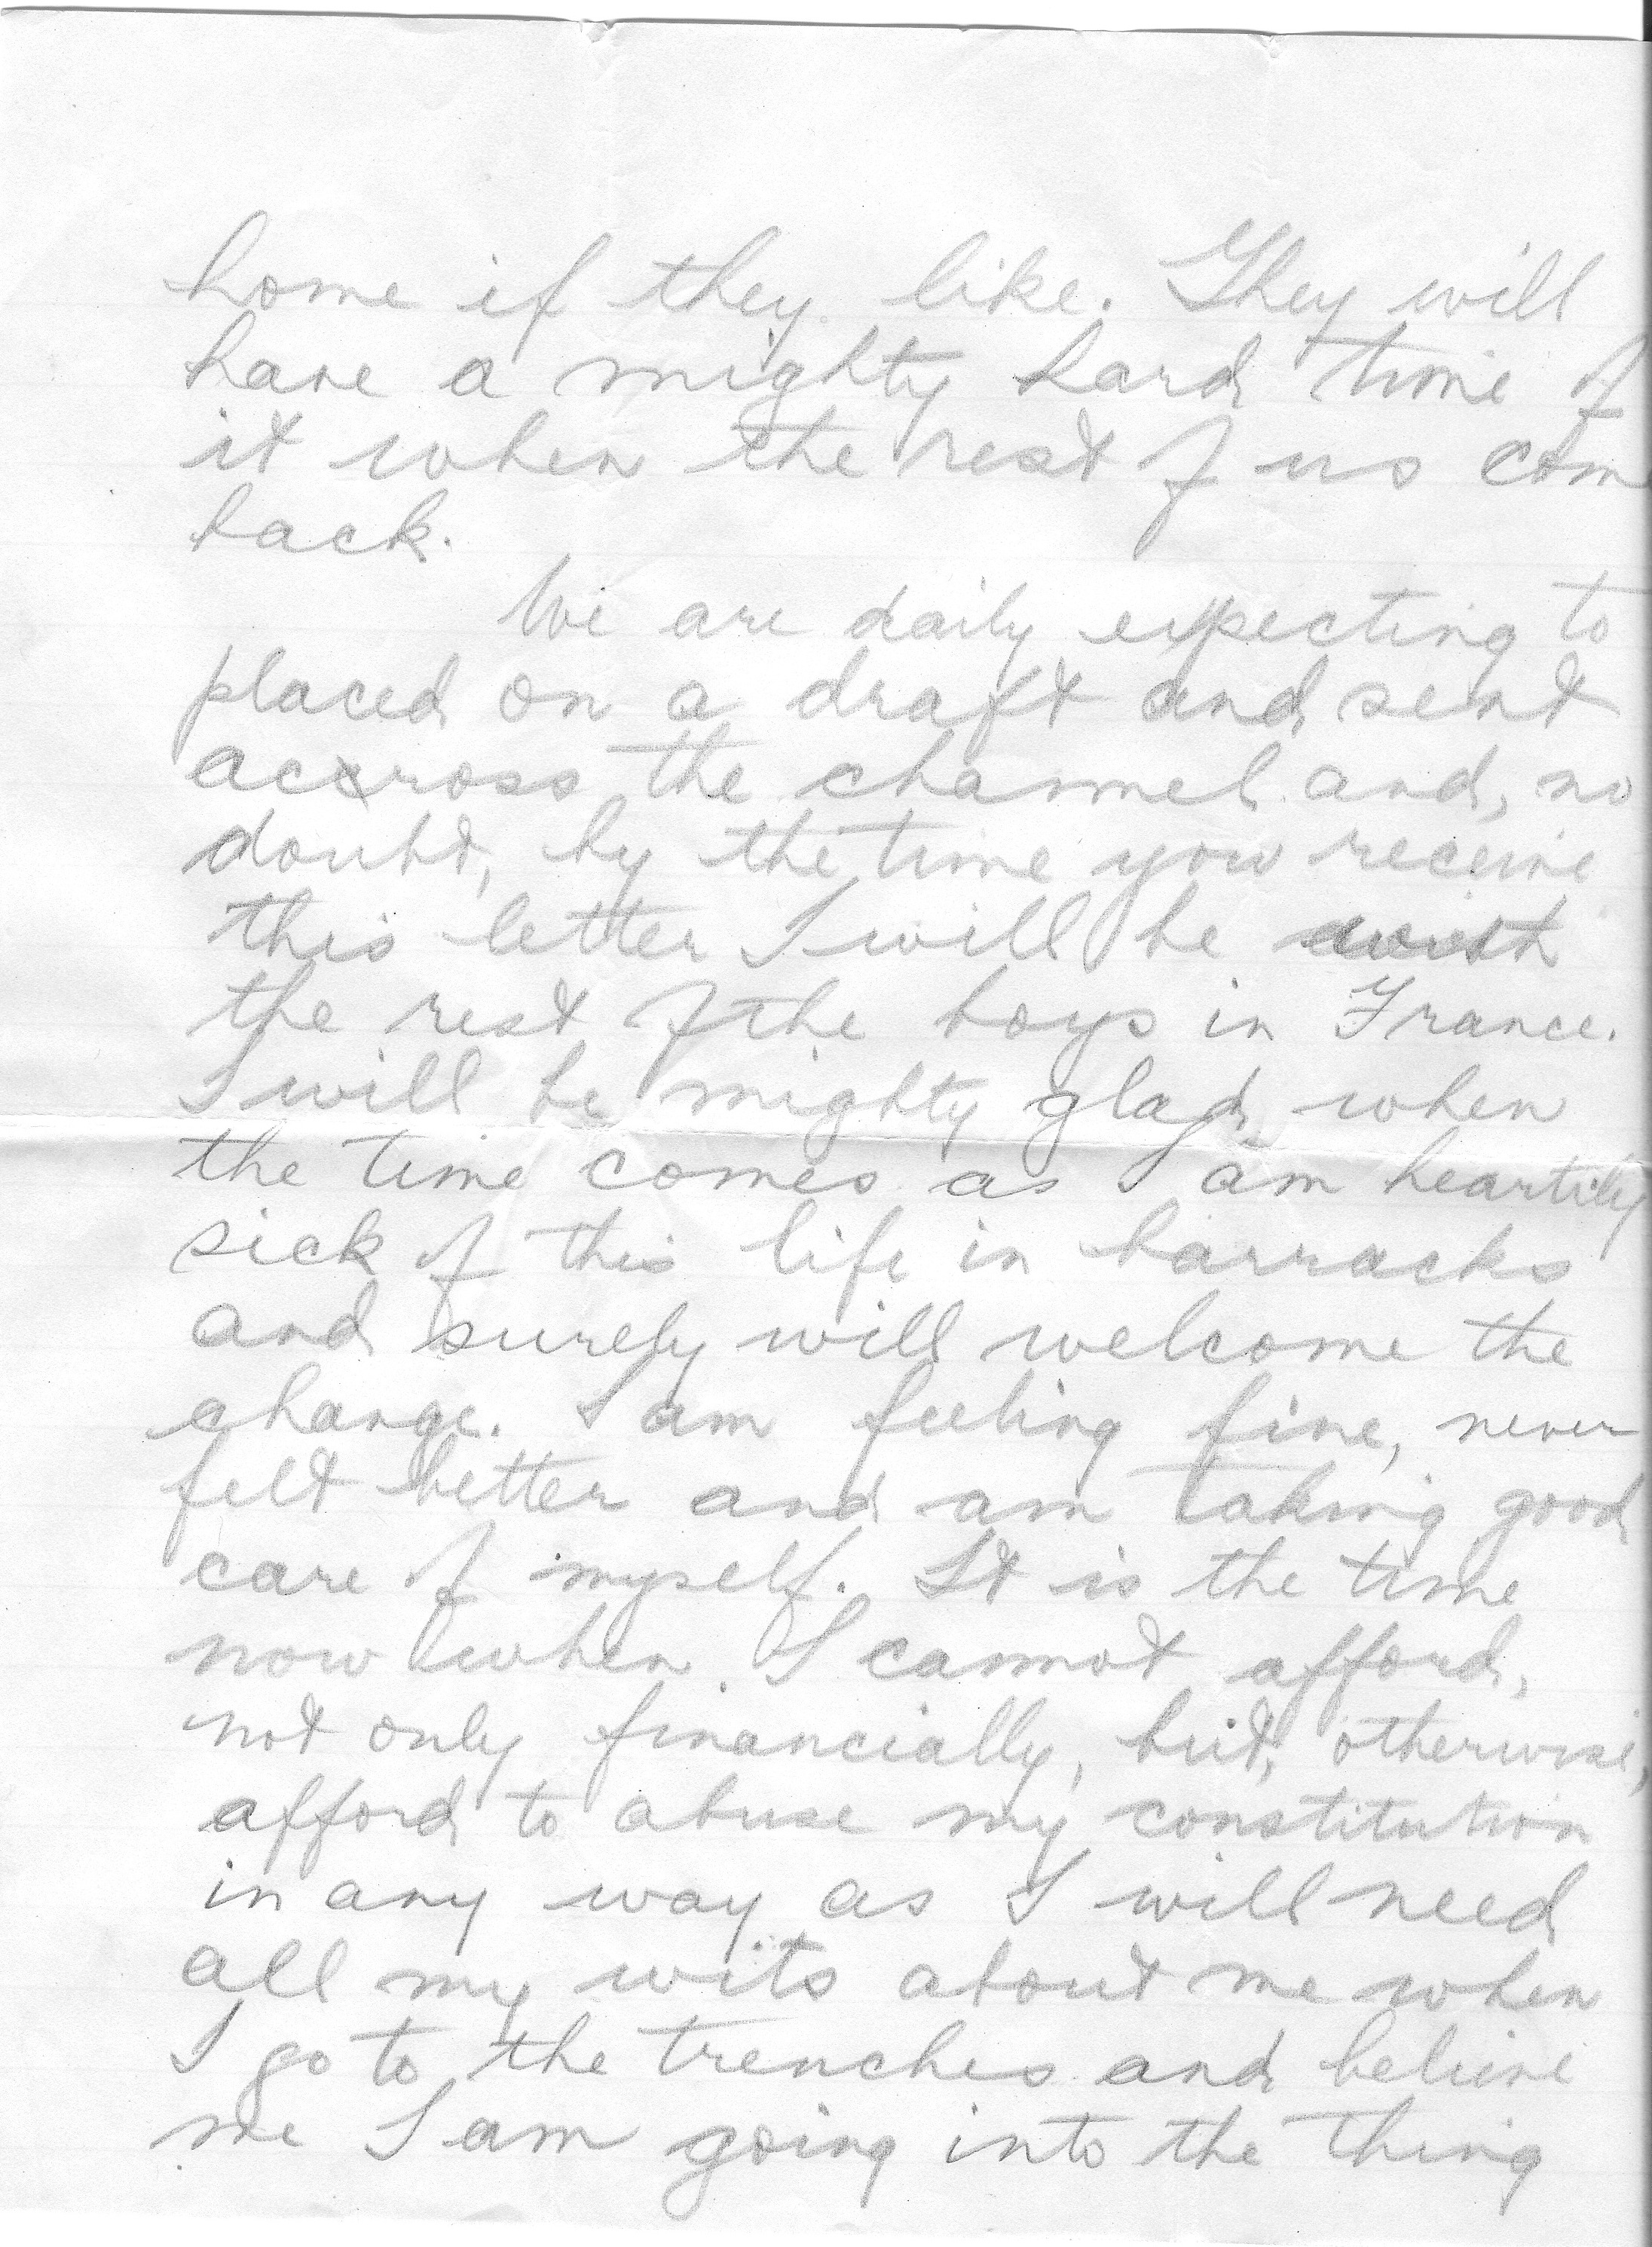 home if they like. They will
have a mighty hard time of
it when the rest of us com
back.
We are daily expecting to
placed on a draft and sent
accross the channel and, no
doubt, by the time you receive
this letter I will be with
the rest of the boys in France.
I will be mighty glad when
the time comes as I am heartily
sick of this life in barracks
and surely will welcome the
change. I am feeling fine, never
felt better and am taking good
care of myself. It is the time
now when I cannot afford,
not only financially, but, otherwise,
afford to abuse my constitution
in any way as I will need
all my wits about me when
I go to the trenches and believe
me I am going into the thing